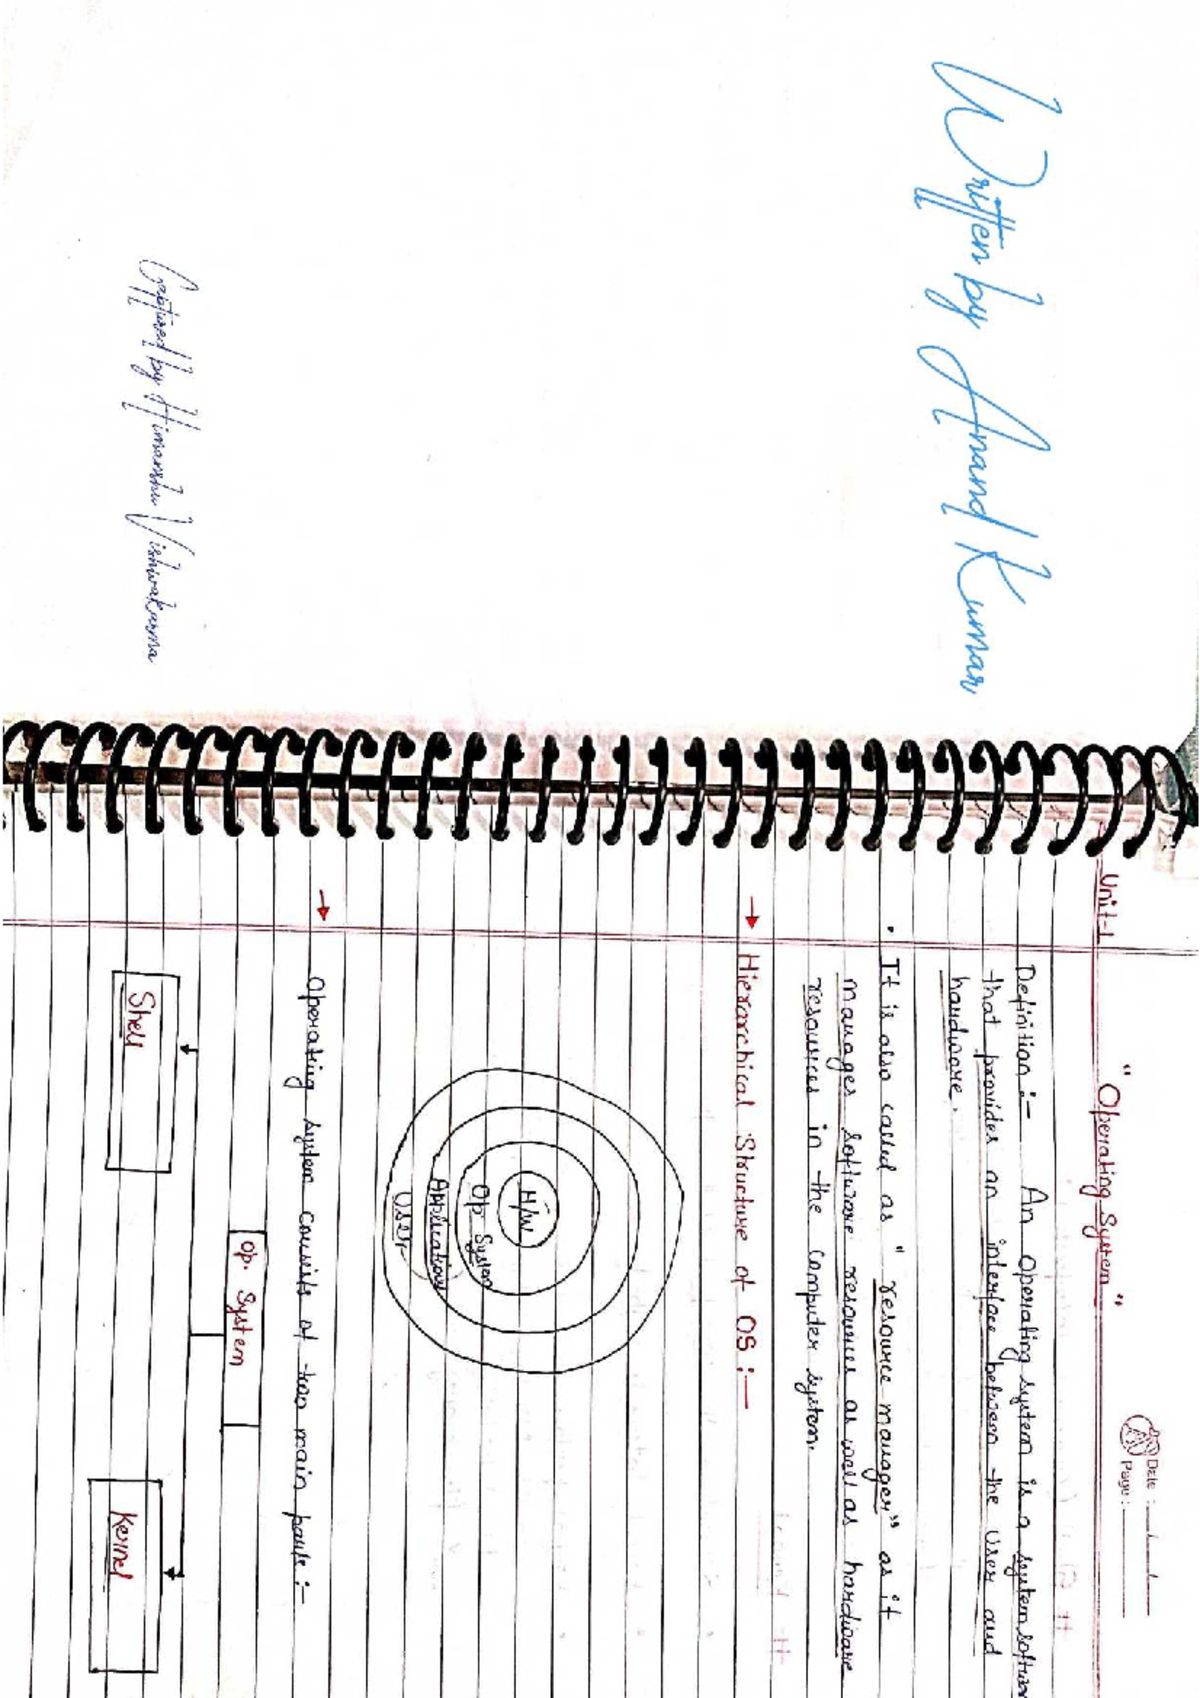 Written by Anand Kumar
Captured by Himanshu Vishwakarma
Date :
Page :
Unit-1
" Operating System "
Definition :- An operating system is a system software
that provides an interface between the user and
hardware.
. It is also called as " resource manager" as it
manages software resources as well as hardware
resources in the computer system.
→ Hierarchical Structure of OS :-
H/W
Op System
Applications
User
→ Operating system consists of two main parts :-
Op. System
Shell
Kernel